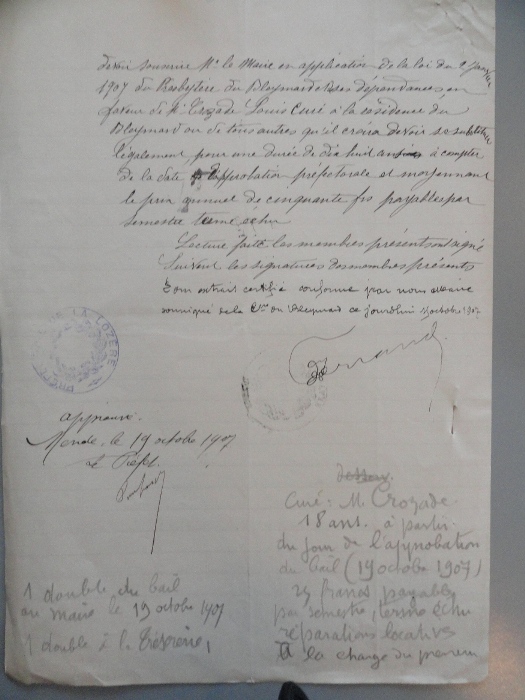 devoir souscrire Mr le Maire en application de la loi du 2 janvier
1907 du Presbytère du Bleymard et ses dépendances en
faveur de Mr Crozade Louis Curé à la résidence du
Bleymard ou de tous autres qu'il croira devoir se substituer
légalement pour une durée de dix huit ans à compter
de la date d'approbation préfectorale et moyennant
le prix annuel de cinquante frs payables par
semestre terme échu
Lecture faite les membres présents ont signé
Suivent les signatures des membres présents
Pour extrait certifié conforme par nous Maire
soussigné de la Cne du Bleymard ce jourd'hui octobre 1907
DE LA LOZÈRE
approuvé.
Mende, le 19 octobre 1907
Le Préfet
Curé : M. Crozade
18 ans à partir
du jour de l'approbation
du bail (19 octobre 1907)
25 francs payable
par semestre, terme échu
réparations locatives
à la charge du preneur
1 double du bail
au maire le 19 octobre 1907
1 double à la Trésorerie,